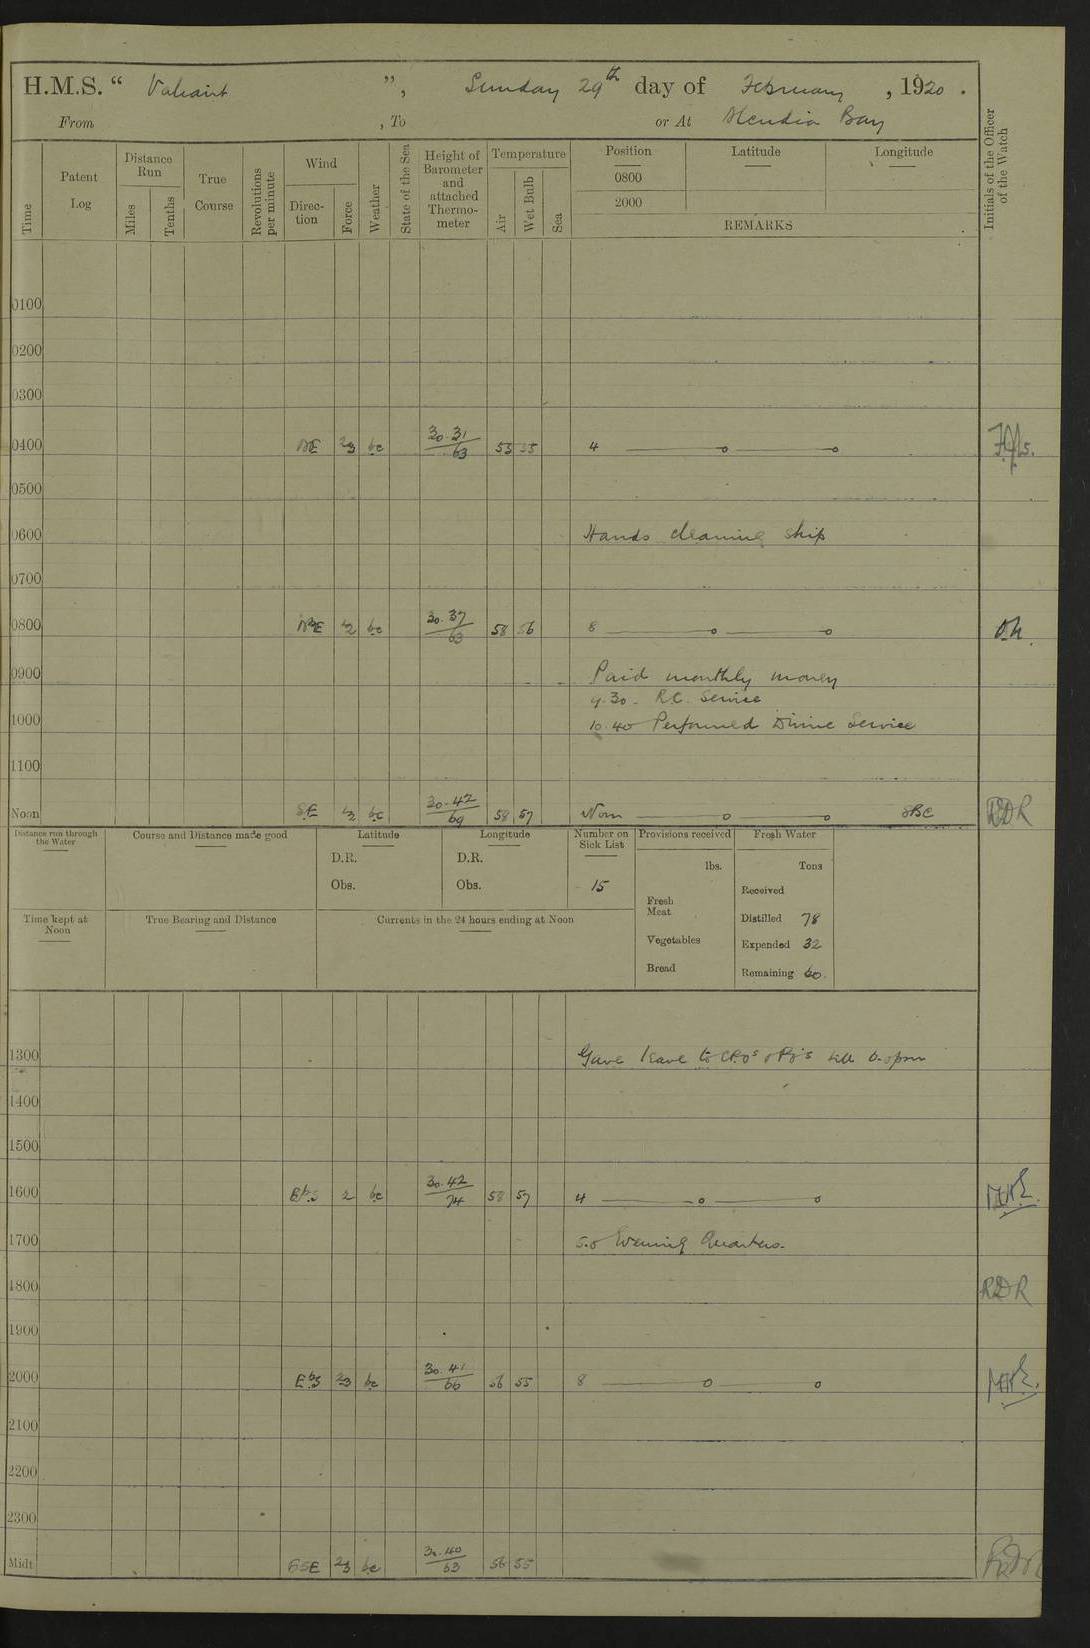 H.M.S. “ Valiant ”, Sunday 29th day of February , 1920 .
From , To or At Bay
Time
Patent Log
Distance Run
Miles
Tenths
True Course
Revolutions per minute
Wind
Direction
Force
Weather
State of the Sea
Height of Barometer and attached Thermometer
Temperature
Air
Wet Bulb
Sea
Position Latitude Longitude
0800
2000
REMARKS
Initials of the Officer of the Watch
0100
0200
0300
0400 2/3 bc 30.31/63 55 55 4
0500
0600 Hands cleaning ship
0700
0800 bc 30.37/63 58 56 8
0900 Paid monthly money
9.30 - R.C. Service
1000 10.40 Performed Divine Service
1100
Noon SE bc 30.42/69 58 57 Noon RDR
Distance run through the Water
Course and Distance made good
Latitude
D.R.
Obs.
Longitude
D.R.
Obs.
Number on Sick List
15
Provisions received
lbs.
Fresh Meat
Vegetables
Bread
Fresh Water
Tons
Received
Distilled 78
Expended 32
Remaining 60.
Time kept at Noon
True Bearing and Distance
Currents in the 24 hours ending at Noon
1300 Gave leave to CPOs & POs till 6.0 pm
1400
1500
1600 EbS 2 bc 30.42/74 58 57 4
1700 5.0 Evening Quarters.
1800 RDR
1900
2000 EbS 2/3 bc 30.41/66 56 55 8
2100
2200
2300
Midt ESE 2/3 bc 30.40/63 56 55